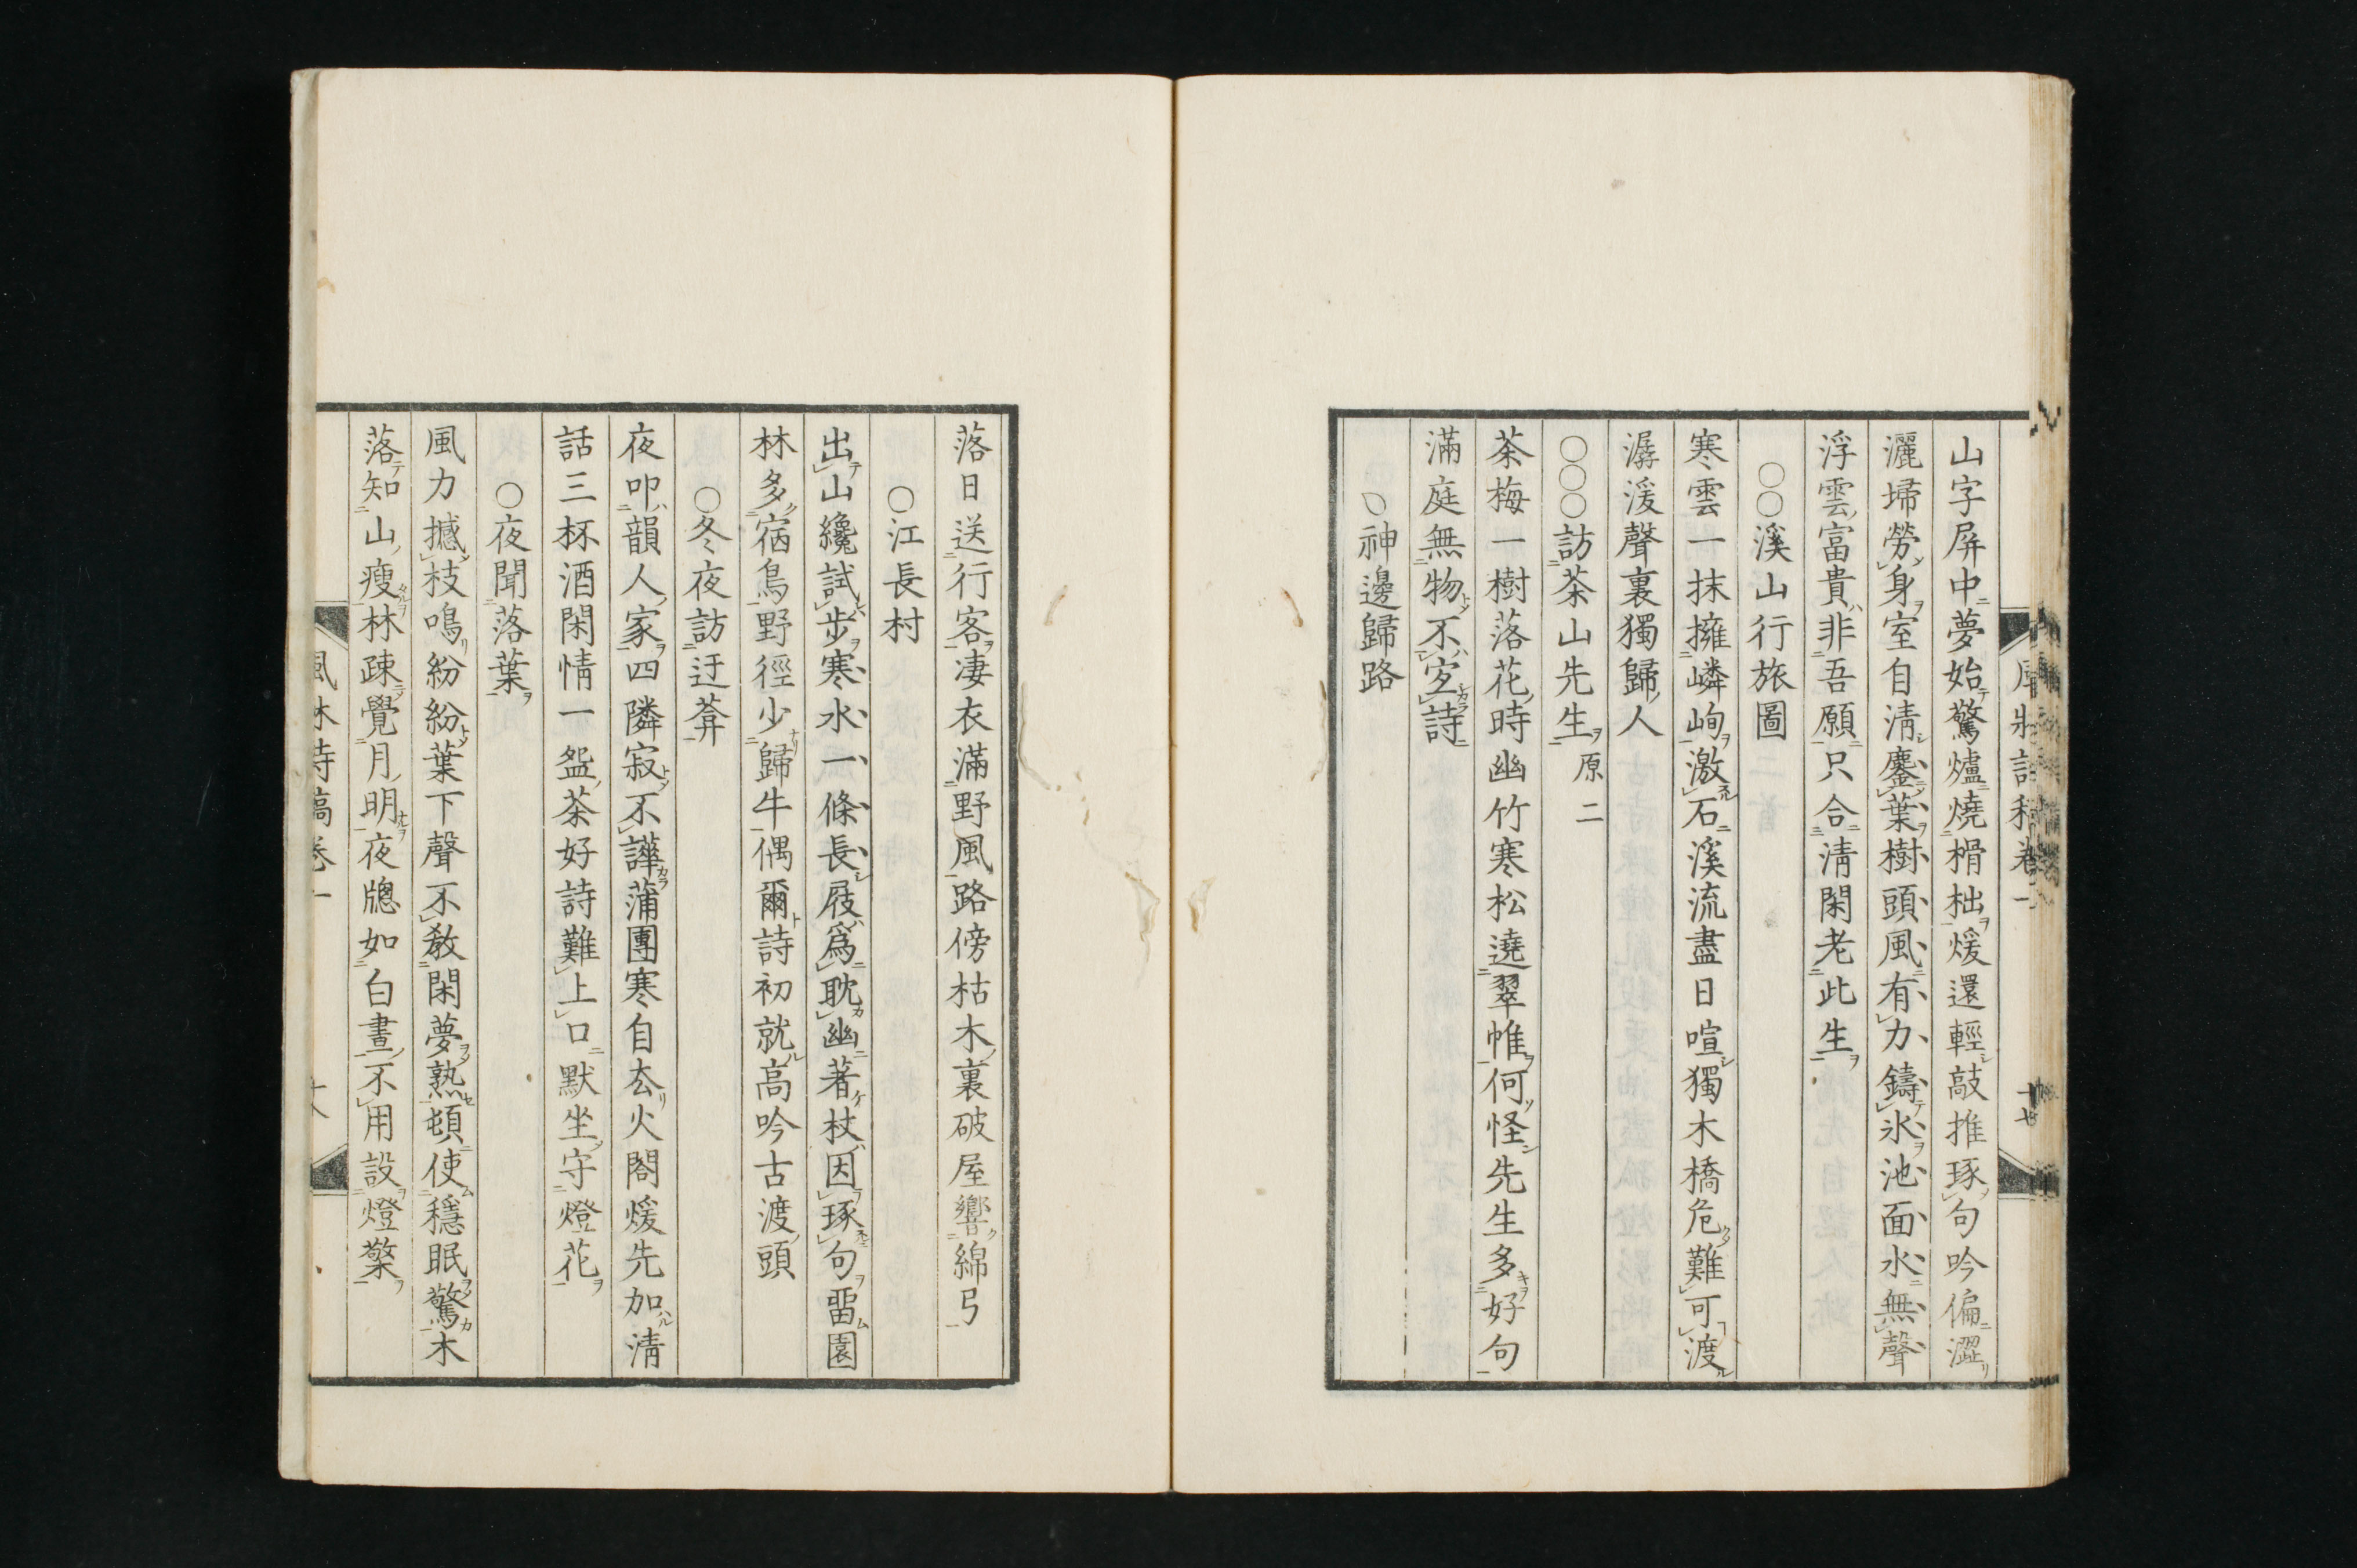 山字屏中夢始驚爐燒榾柮煖還輕敲推琢句吟偏澀
灑埽勞身室自淸鏖葉樹頭風有力鑄氷池面水無聲
浮雲富貴非吾願只合淸閑老此生
○○溪山行旅圖
寒雲一抹擁嶙峋激石溪流盡日喧獨木橋危難可渡
潺湲聲裏獨歸人
○○○訪茶山先生原二
茶梅一樹落花時幽竹寒松遶翠帷何怪先生多好句
滿庭無物不宜詩
○神邊歸路
落日送行客凄衣滿野風路傍枯木裏破屋響綿弓
○江長村
出山纔試步寒水一條長屐爲耽幽著杖因琢句畱園
林多宿鳥野徑少歸牛偶爾詩初就高吟古渡頭
○冬夜訪迂葊
夜叩韻人家四隣寂不譁蒲團寒自厺火閤煖先加淸
話三杯酒閑情一盌茶好詩難上口默坐守燈花
○夜聞落葉
風力撼枝鳴紛紛葉下聲不敎閑夢熟頓使穩眠驚木
落知山瘦林疎覺月明夜牕如白晝不用設燈檠
風牀詩稿卷一 十八